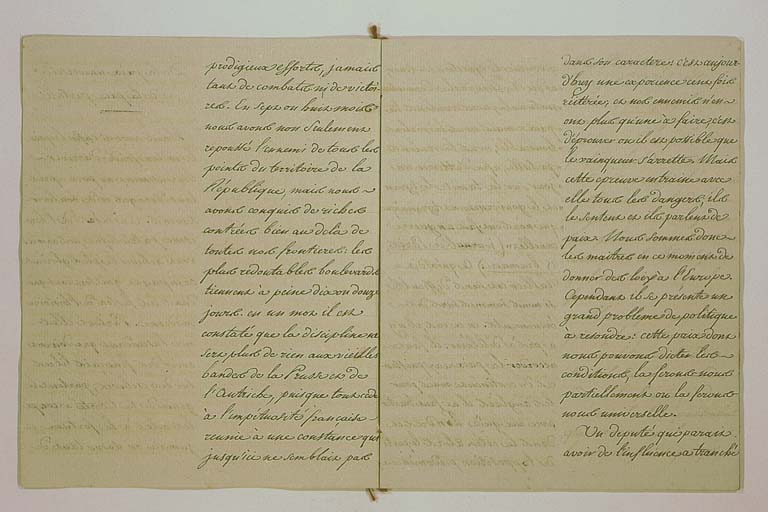 prodigieux efforts, jamais
tant de combats ni de victoi-
res. En sept ou huit mois
nous avons non Seulement
repoussé l'ennemi de tous les
points du territoire de la
République, mais nous
avons conquis de riches
contrées bien au delà de
toutes nos frontieres: les
plus redoutables boulevards
tiennent à peine dix ou douze
jours. en un mot il est
constaté que la discipline ne
sert plus de rien aux vieilles
bandes de la Prusse et de
l'Autriche, puisque tout cede
à l'impétuosité française
reunie à une constance qui
jusqu'ici ne semblait pas
dans son caractere; c'est aujour
d'huy une experience cent fois
réitérée, et nos ennemis n'en
ont plus qu'une à faire, c'est
d'éprouver ou il est possible que
le vainqueur s'arrette. Mais
cette épreuve entraine avec
elle tous les dangers, ils
le sentent et ils parlent de
paix. Nous sommes donc
les maîtres en ce moment de
donner des loix à l'Europe.
Cependant il se présente un
grand problème de politique
à resoudre: cette paix dont
nous pouvons dicter les
conditions, la ferons nous
partiellement ou la ferons
nous universelle.
Un député qui parait
avoir de l'influence a tranché